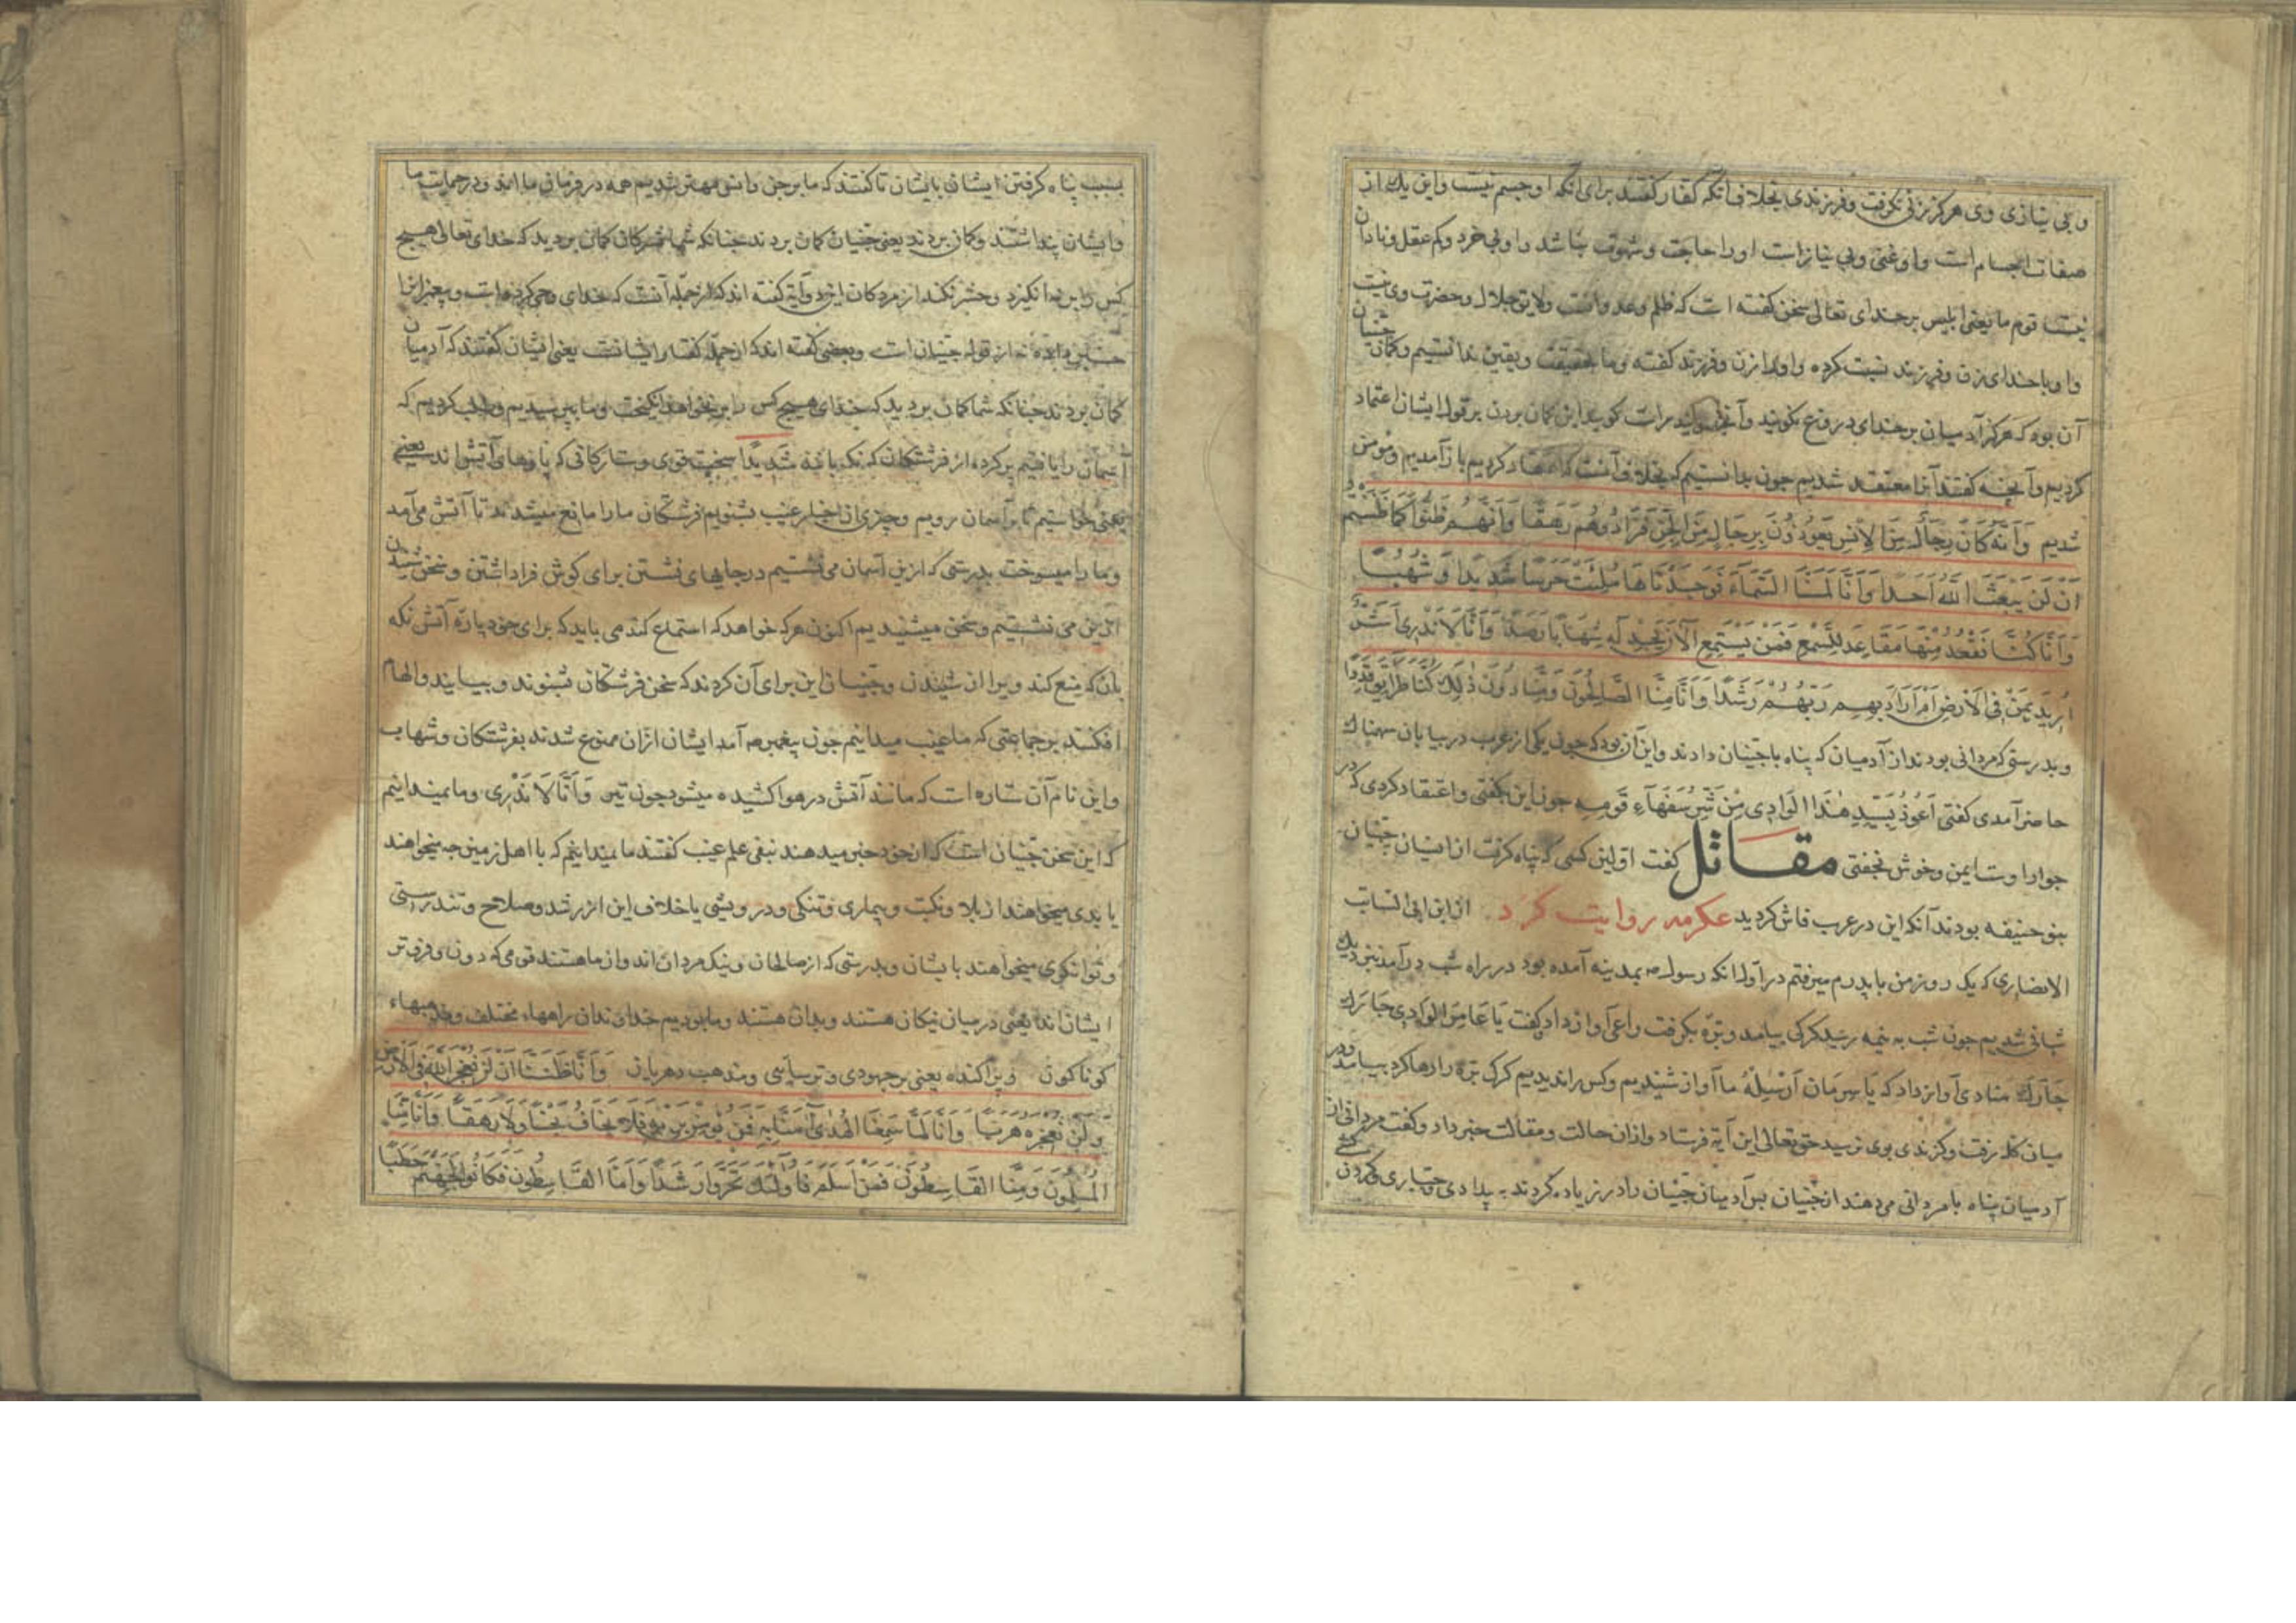 و بی نیازی وی هرکز زنی نکرفت و فرزندی بخلاف آنکه کفار کفتند برای آنکه او جسم نیست و این یک از
صفات اجسام است و او غنی و بی نیاز است او را حاجت و شهوت نباشد و او بی خرد و کم عقل و نادان
نیست قوم ما یعنی ابلیس بر خدای تعالی سخن کفته است که ظلم و عدوانست ولایق جلال و حضرت وی نیست
و او با خدای زن و فرزند نسبت کرده و او را زن و فرزند کفته و ما بحقیقت و یقین ندانستیم و کمان جنیان
آن بود که هرکز آدمیان بر خدای دروغ نکویند و آنچه کویند راست کویند این کمان بردن بر قول ایشان اعتماد
کردیم و آنچه کفتند آنرا معتقد شدیم جون بدانستیم که بخلاف آنست که اعتقاد کردیم باز آمدیم و مؤمن
شدیم وَاَنَّهُ كَانَ رِجَالٌ مِنَ الاِنْسِ يَعُوذُونَ بِرِجَالٍ مِنَ الْجِنِّ فَزَادُوهُمْ رَهَقًا وَاَنَّهُمْ ظَنُّوا كَمَا ظَنَنْتُمْ
اَنْ لَنْ يَبْعَثَ اللّٰهُ اَحَدًا وَاَنَّا لَمَسْنَا السَّمَاءَ فَوَجَدْنَاهَا مُلِئَتْ حَرَسًا شَدِيدًا وَشُهُبًا
وَاَنَّا كُنَّا نَقْعُدُ مِنْهَا مَقَاعِدَ لِلسَّمْعِ فَمَنْ يَسْتَمِعِ الْاٰنَ يَجِدْ لَهُ شِهَابًا رَصَدًا وَاَنَّا لَا نَدْرِى اَشَرٌّ
اُرِيدَ بِمَنْ فِى الْاَرْضِ اَمْ اَرَادَ بِهِمْ رَبُّهُمْ رَشَدًا وَاَنَّا مِنَّا الصَّالِحُونَ وَمِنَّا دُونَ ذٰلِكَ كُنَّا طَرَايِقَ قِدَدًا
و بدرستی که مردانی بودند از آدمیان که پناه با جنیان دادند و این آن بود که جون یکی از عرب در بیابان سهمناک
حاضر آمدی کفتی اَعُوذُ بِسَيِّدِ هٰذَا الْوَادِى مِنْ شَرِّ سُفَهَاءِ قَومِهِ جون این بکفتی و اعتقاد کردی که در
جوار اوست ایمن و خوش بخفتی مقاتل کفت اولین کسی که پناه کرفت از انسان جنیان
بنو حنیفه بودند آنکه این در عرب فاش کردید عکرمه روایت کرد از ابن ابی السائب
الانصاری که یک روز من با پدرم میرفتم در آول آنکه رسول ص بمدینه آمده بود در راه شب در آمد نزدیک
شبانی شدیم جون شب به نیمه رسید کرکی بیامد و بره بکرفت راعی آواز داد و کفت یَا عَامِرَ الْوَادِی جَارَك
جَارَك منادی آواز داد که یَا سِرحَان اَرْسِلْهُ ما آواز شنیدیم و کس را ندیدیم کرک بره را رها کرد بیامد و در
میان کله رفت و کزندی بوی نرسید حق تعالی این آیه فرستاد و ازان حالت و مقالت خبر داد و کفت مردانی از
آدمیان پناه با مردانی می دهند از جنیان بس آدمیان جنیان را در زیاده کردند به بیدادی و جباری و کردن
بسبب پناه کرفتن ایشان بایشان تا کفتند که ما بر جن و انس مهتر شدیم همه در فرمان ما اند و در حمایت ما
و ایشان پنداشتند و کمان بردند یعنی جنیان کمان بردند جنانکه شما مشرکان کمان بردید که خدای تعالی هیج
کس را بر نه انکیزد و حشر نکند از مردکان این دو آیه کفته اند که از جمله آنست که خدای وحی کرده است و پیغمبر را
خبر داده نه از قول جنیان است و بعضی کفته اند که از جمله کفتار ایشانست یعنی ایشان کفتند که آدمیان
کمان بردند جنانکه شما کمان بردید که خدای هیج کس را بر نخواهد انکیخت و ما بپرسیدیم و طلب کردیم که
آسمان را یافتیم پر کرده از فرشتکان که نکه بانند شَدِيدًا سخت قوی و ستارکانی که پارهاء آتش اند یعنی
یعنی خواستیم تا بر آسمان رویم و جیزی از اخبار غیب بشنویم فرشتکان ما را مانع میشدند تا آتش می آمد
و ما را میسوخت بدرستی که از این آسمان می نشستیم در جایهای نشستن برای کوش فرا داشتن و سخن شنیدن
از این می نشستیم و سخن میشنیدیم اکنون هرکه خواهد که استماع کند می باید که برای خود پاره آتش نکه
بان که منع کند ویرا از شنیدن و جنیان این برای آن کردند که سخن فرشتکان بشنوند و بیایند و الهام
افکنند بر جماعتی که ما غیب میدانیم جون پیغمبر ص آمد ایشان ازان ممنوع شدند بفرشتکان و شهاب
و این نام آن ستاره است که مانند آتش در هوا کشیده میشود جون تیر وَاَنَّا لَا نَدْرِى و ما نمیدانیم
که این سخن جنیان است که از خود خبر میدهند بنفی علم غیب کفتند ما نمیدانیم که با اهل زمین جه میخواهند
یا بدی میخواهند از بلا و نکبت و بیماری و تنکی و درویشی یا خلاف این از رشد و صلاح و تندرستی
و توانکری میخواهند بایشان و بدرستی که از صالحان و نیک مردان اند و از ما هستند قومی که دون و فروتر
ایشان اند یعنی در میان نیکان هستند و بدان هستند و ما بودیم خداوندان راهها مختلف و مذهبهاء
کوناکون و پراکنده یعنی بر جهودی و ترسایی و مذهب دهریان وَاَنَّا ظَنَنَّا اَنْ لَنْ نُعْجِزَ اللّٰهَ فِى الْاَرْضِ
وَلَنْ نُعْجِزَهُ هَرَبًا وَاَنَّا لَمَّا سَمِعْنَا الْهُدٰى اٰمَنَّا بِهِ فَمَنْ يُؤْمِنْ بِرَبِّهِ فَلَا يَخَافُ بَخْسًا وَلَا رَهَقًا وَاَنَّا مِنَّا
الْمُسْلِمُونَ وَمِنَّا الْقَاسِطُونَ فَمَنْ اَسْلَمَ فَاُولٰئِكَ تَحَرَّوْا رَشَدًا وَاَمَّا الْقَاسِطُونَ فَكَانُوا لِجَهَنَّمَ حَطَبًا